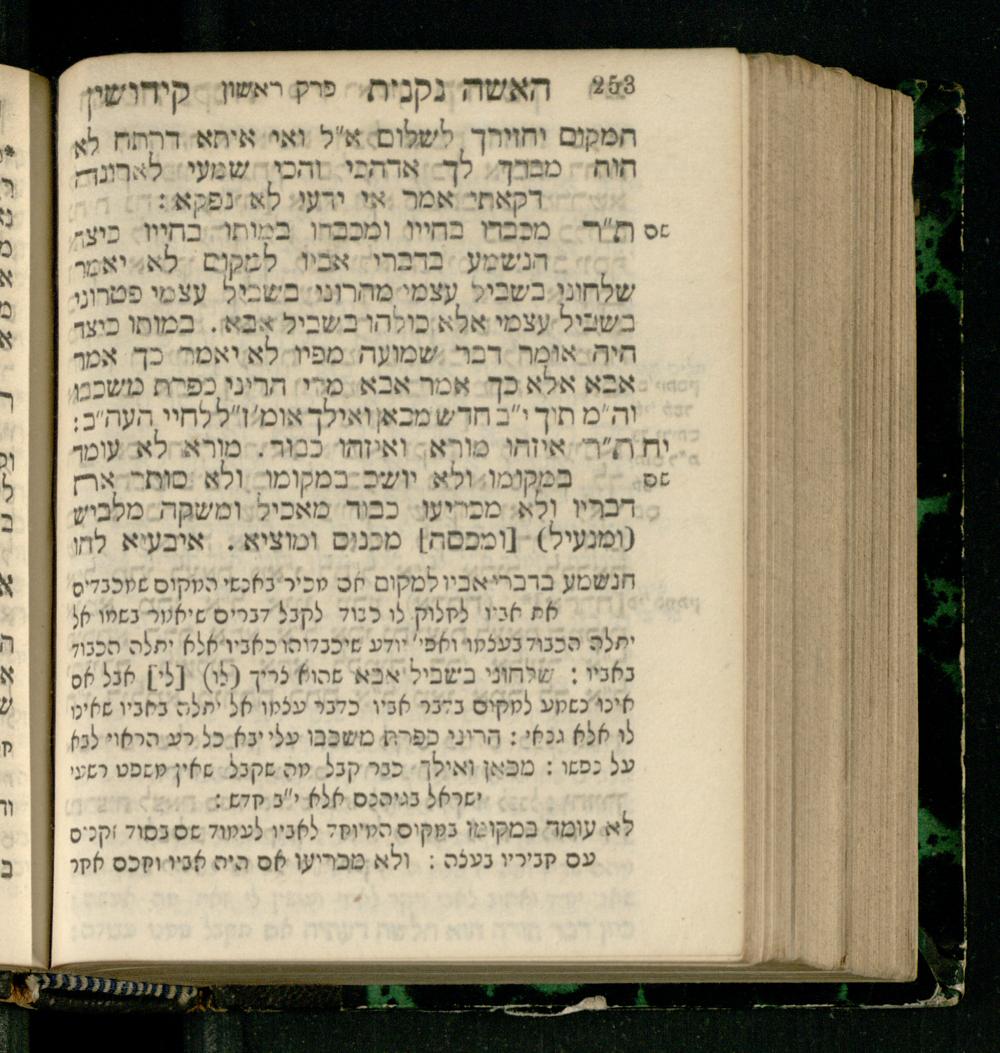 האשה נקנית פרק ראשון קידושין 253
המקום יחזירך לשלום א"ל ואי איתא דרתח לא
הוה מברך לך אדהכי והכי שמעי לארונה
דקאתי אמר אי ידעי לא נפקא :
שם ת"ר מכבדו בחייו ומכבדו במותו בחייו כיצד
הנשמע בדברי אביו למקום לא יאמר
שלחוני בשביל עצמי מהרוני בשביל עצמי פטרוני
בשביל עצמי אלא כולהו בשביל אבא . במותו כיצד
היה אומר דבר שמועה מפיו לא יאמר כך אמר
אבא אלא כך אמר אבא מרי הריני כפרת משכבו
וה"מ תוך י"ב חדש מכאן ואילך אומ' ז"ל לחיי העה"ב :
יח ת"ר איזהו מורא ואיזהו כבוד . מורא לא עומד
שם במקומו ולא יושב במקומו ולא סותר את
דבריו ולא מכריעו כבוד מאכיל ומשקה מלביש
(ומנעיל) [ומכסה] מכניס ומוציא . איבעיא להו
הנשמע בדברי אביו למקום אם מכיר באנשי המקום שמכבדים
את אביו לחלוק לו כבוד לקבל דברים שיאמר בשמו אל
יתלה הכבוד בעצמו ואפי' יודע שיכבדוהו כאביו אלא יתלה הכבוד
באביו : שלחוני בשביל אבא שהוא צריך (לו) [לי] אבל אם
אינו נשמע למקום בדבר אביו כדבר עצמו אל יתלה באביו שאינו
לו אלא גנאי : הריני כפרת משכבו עלי יבא כל רע הראוי לבא
על נפשו : מכאן ואילך כבר קבל מה שקבל שאין משפט רשעי
ישראל בגיהנם אלא י"ב חדש :
לא עומד במקומו במקום המיוחד לאביו לעמוד שם בסוד זקנים
עם חביריו בעצה : ולא מכריעו אם היה אביו וחכם אחר